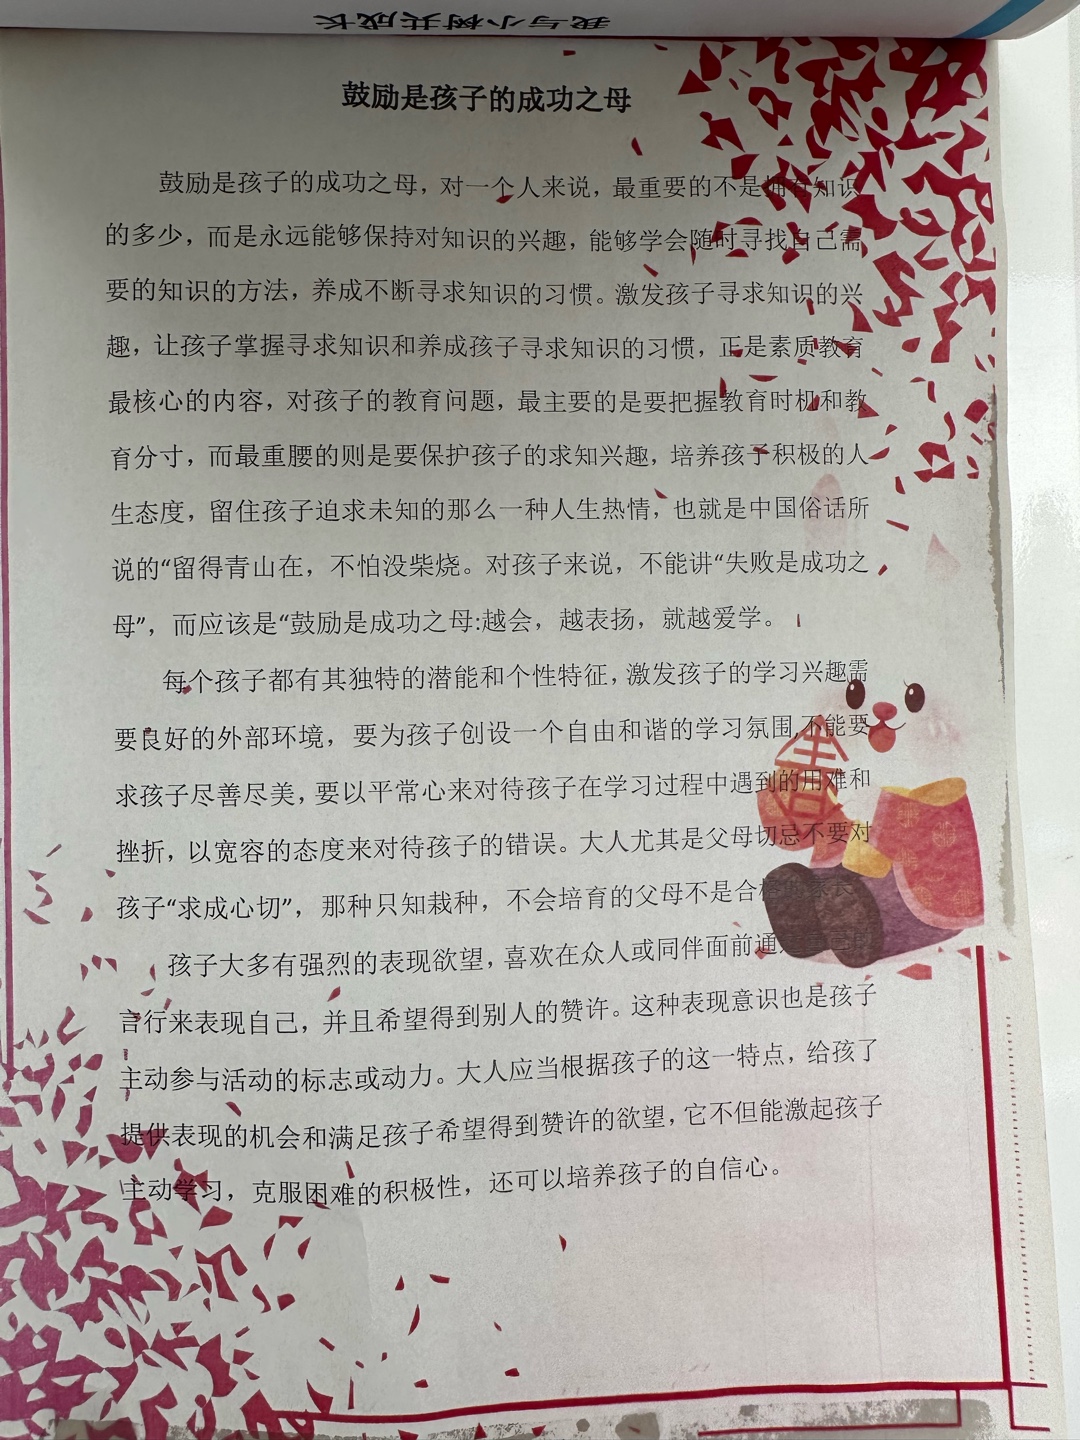 我与小树共成长
鼓励是孩子的成功之母
鼓励是孩子的成功之母，对一个人来说，最重要的不是拥有知识
的多少，而是永远能够保持对知识的兴趣，能够学会随时寻找自己需
要的知识的方法，养成不断寻求知识的习惯。激发孩子寻求知识的兴
趣，让孩子掌握寻求知识和养成孩子寻求知识的习惯，正是素质教育
最核心的内容，对孩子的教育问题，最主要的是要把握教育时机和教
育分寸，而最重腰的则是要保护孩子的求知兴趣，培养孩子积极的人
生态度，留住孩子迫求未知的那么一种人生热情，也就是中国俗话所
说的“留得青山在，不怕没柴烧。对孩子来说，不能讲“失败是成功之
母”，而应该是“鼓励是成功之母:越会，越表扬，就越爱学。
每个孩子都有其独特的潜能和个性特征，激发孩子的学习兴趣需
要良好的外部环境，要为孩子创设一个自由和谐的学习氛围,不能要
求孩子尽善尽美，要以平常心来对待孩子在学习过程中遇到的用难和
挫折，以宽容的态度来对待孩子的错误。大人尤其是父母切忌不要对
孩子“求成心切”，那种只知栽种，不会培育的父母不是合格的家长
孩子大多有强烈的表现欲望，喜欢在众人或同伴面前通
言行来表现自己，并且希望得到别人的赞许。这种表现意识也是孩子
主动参与活动的标志或动力。大人应当根据孩子的这一特点，给孩了
提供表现的机会和满足孩子希望得到赞许的欲望，它不但能激起孩子
主动学习，克服困难的积极性，还可以培养孩子的自信心。